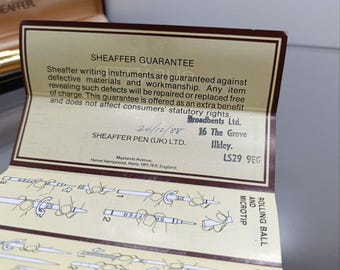 SHEAFFER
SHEAFFER GUARANTEE
Sheaffer writing instruments are guaranteed against
defective materials and workmanship. Any item
revealing such defects will be repaired or replaced free
of charge. This guarantee is offered as an extra benefit
and does not affect consumers' statutory rights.
24/12/88
Broadbents Ltd.
16 The Grove
Ilkley.
LS29 9EG
SHEAFFER PEN (UK) LTD.
Maylands Avenue,
Hemel Hempstead, Herts. HP2 7ER, England.
ROLLING BALL
AND
MICROTIP
1
2